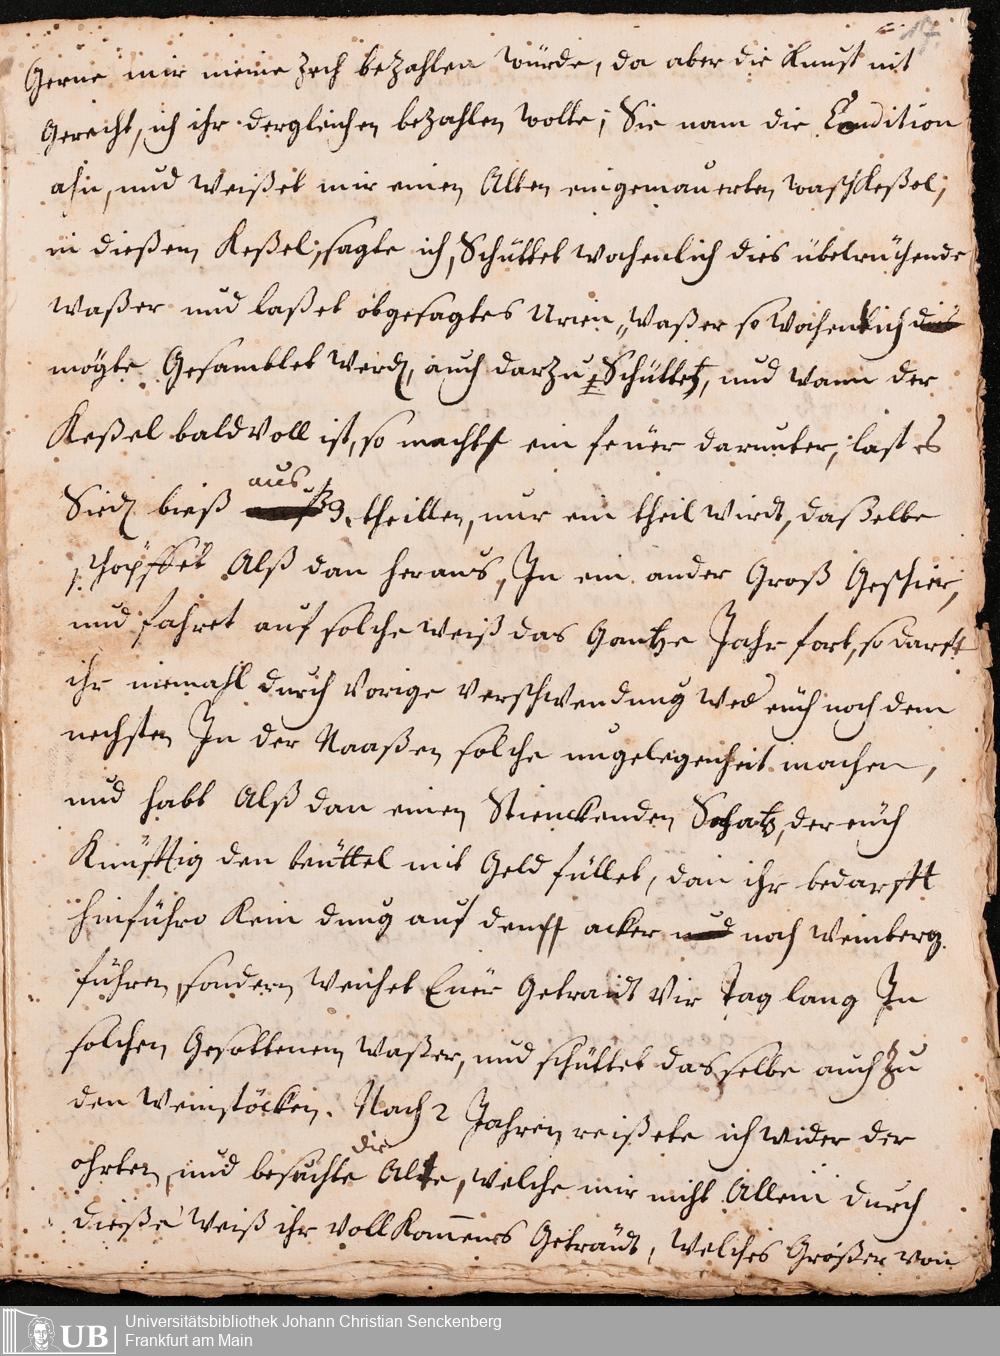 17
Gerne mir meine Zech bezahlen würde, da aber die Kunst nit
Gerecht, ich ihr dergleichen bezahlen wolte; Sie nam die Condition
ahn, und Weißet mir einen Alten eingemauerten waschkeßel;
in dießem Keßel, sagte ich, Schüttet wochenlich dies übelrüchende
Waßer und laßet obgesagtes Urien Waßer so wochentlich
mögte Gesamblet Werd, auch darzu Schütten, und wann der
Keßel bald Voll ist, so macht ein feüer darunter, last es
aus
Sied bieß 3. theillen, nur ein theil Wirdt, daßelbe
schöpffet Alß dan heraus, In ein ander Groß Geschier,
und fahret auf solche Weiß das Gantze Jahr fort, so darfft
ihr niemahl durch Vorige Verschwendung Wed eüch noch dem
nechsten In der Naaßen solche ungelegenheit machen,
und habt Alß dan einen Stienckenden Schatz, der eüch
Künfftig den beüttel mit Geld füllet, dan ihr bedarfft
hinführo Kein dung auf acker noch Weinberg
führen, sondern Weichet Eüer Getraidt Vir Tag lang In
solchen Gesottenem Waßer, und schüttet dasselbe auch Zu
den Weinstöcken. Nach 2 Jahren reißete ich Wider der
die
ohrten, und besuchte Alte, Welche mir nicht Allein durch
dieße Weiß ihr VollKomenes Geträudt, Welches Größer von
UB
Universitätsbibliothek Johann Christian Senckenberg
Frankfurt am Main